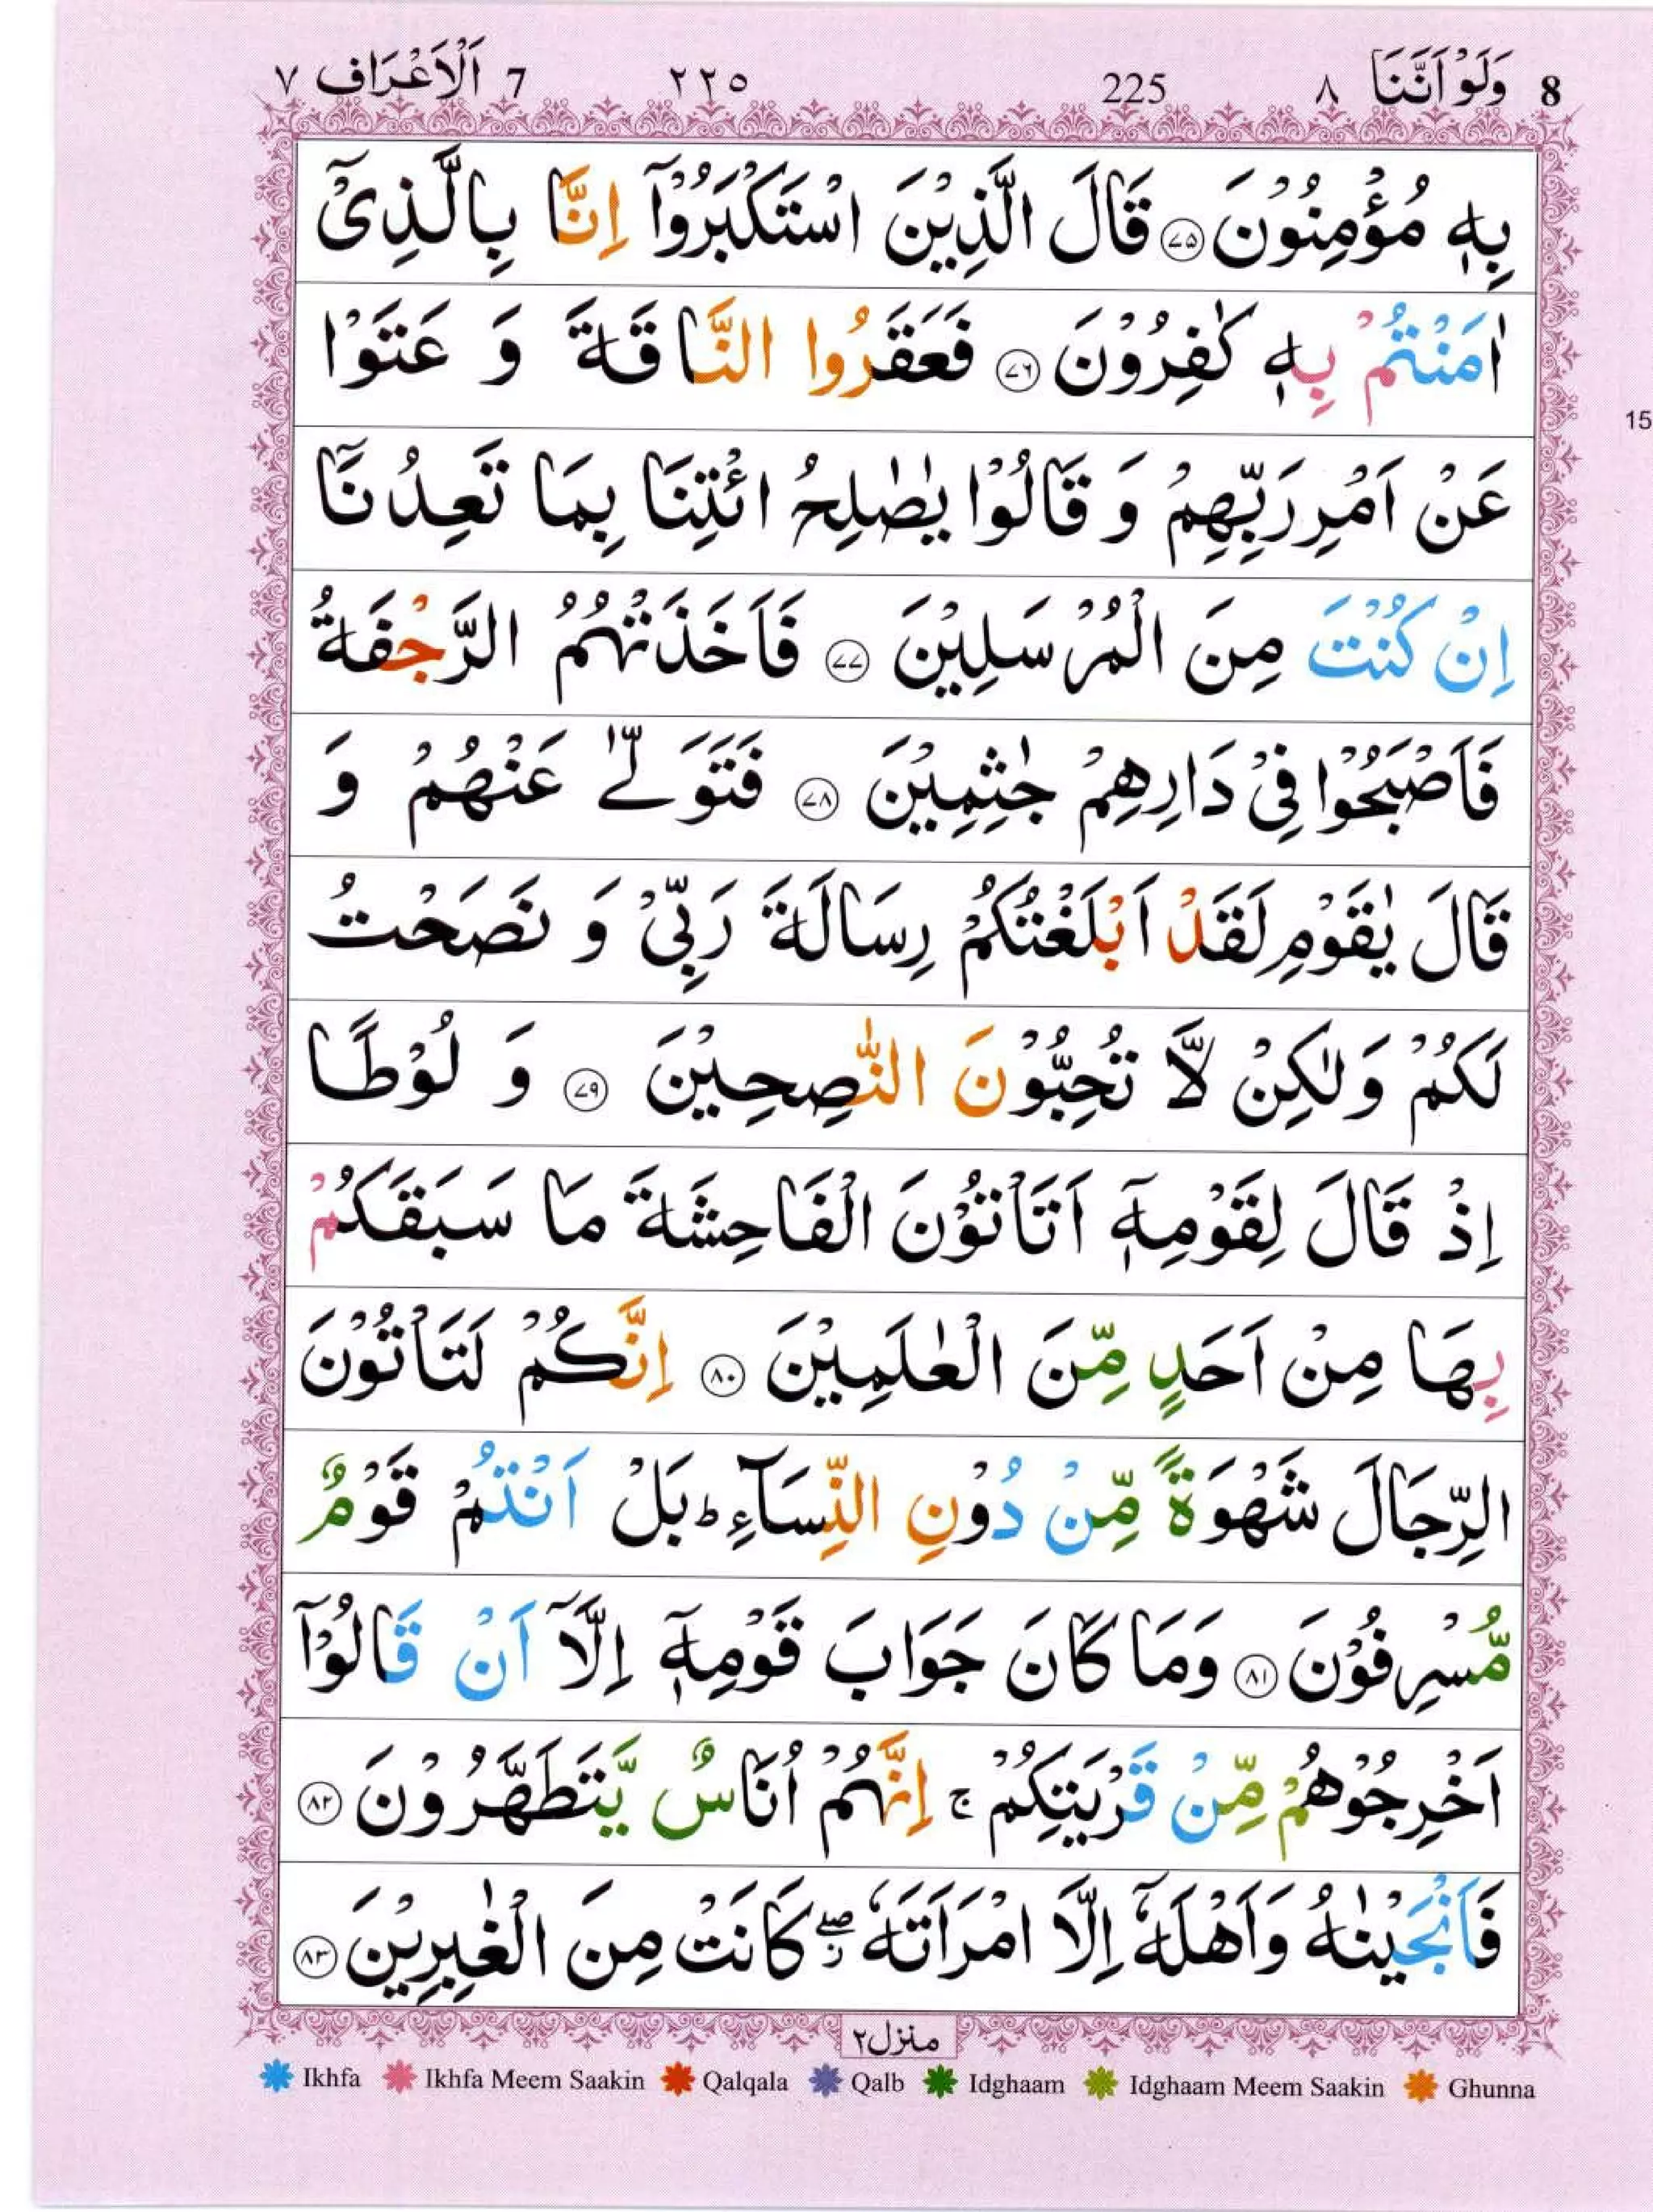 8 وَلَوْ اَنَّنَا ٨ 225 ٢٢٥ 7 اَلْاَعْرَاف ٧
بِهٖ مُؤْمِنُوْنَ ﴿٧٥﴾ قَالَ الَّذِيْنَ اسْتَكْبَرُوْۤا اِنَّا بِالَّذِيْۤ
اٰمَنْتُمْ بِهٖ كٰفِرُوْنَ ﴿٧٦﴾ فَعَقَرُوا النَّاقَةَ وَ عَتَوْا
عَنْ اَمْرِ رَبِّهِمْ وَ قَالُوْا يٰصٰلِحُ ائْتِنَا بِمَا تَعِدُنَاۤ
اِنْ كُنْتَ مِنَ الْمُرْسَلِيْنَ ﴿٧٧﴾ فَاَخَذَتْهُمُ الرَّجْفَةُ
فَاَصْبَحُوْا فِيْ دَارِهِمْ جٰثِمِيْنَ ﴿٧٨﴾ فَتَوَلّٰى عَنْهُمْ وَ
قَالَ يٰقَوْمِ لَقَدْ اَبْلَغْتُكُمْ رِسَالَةَ رَبِّيْ وَ نَصَحْتُ
لَكُمْ وَلٰكِنْ لَّا تُحِبُّوْنَ النّٰصِحِيْنَ ﴿٧٩﴾ وَ لُوْطًا
اِذْ قَالَ لِقَوْمِهٖۤ اَتَاْتُوْنَ الْفَاحِشَةَ مَا سَبَقَكُمْ
بِهَا مِنْ اَحَدٍ مِّنَ الْعٰلَمِيْنَ ﴿٨٠﴾ اِنَّكُمْ لَتَاْتُوْنَ
الرِّجَالَ شَهْوَةً مِّنْ دُوْنِ النِّسَآءِ ؕ بَلْ اَنْتُمْ قَوْمٌ
مُّسْرِفُوْنَ ﴿٨١﴾ وَمَا كَانَ جَوَابَ قَوْمِهٖۤ اِلَّاۤ اَنْ قَالُوْۤا
اَخْرِجُوْهُمْ مِّنْ قَرْيَتِكُمْ ۚ اِنَّهُمْ اُنَاسٌ يَّتَطَهَّرُوْنَ ﴿٨٢﴾
فَاَنْجَيْنٰهُ وَاَهْلَهٗۤ اِلَّا امْرَاَتَهٗ ۖز كَانَتْ مِنَ الْغٰبِرِيْنَ ﴿٨٣﴾
منزل ٢
Ikhfa Ikhfa Meem Saakin Qalqala Qalb Idghaam Idghaam Meem Saakin Ghunna
15